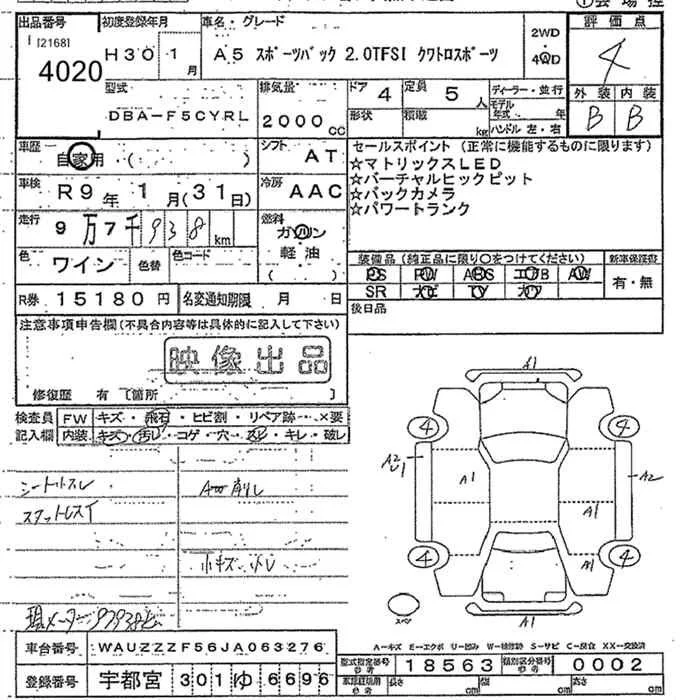 出品番号 初度登録年月 車名・グレード 2WD 評価点
[2168] 4020 H30 1月 A5 スポーツバック 2.0TFSI クワトロスポーツ 4WD 4
型式 排気量 ドア 4 定員 5人 ディーラー・並行 外装 内装
DBA-F5CYRL 2000cc 形状 積載 kg モデル年式 年 ハンドル 左・右 B B
車歴 自家用・( ) シフト AT セールスポイント (正常に機能するものに限ります)
☆マトリックスLED
車検 R9年 1月(31日) 冷房 AAC ☆バーチャルヒックピット
☆バックカメラ
☆パワートランク
走行 9万7千938km 燃料 ガソリン
軽油
( )
色 ワイン 色替 色コード 装備品 (純正品に限り○をつけてください) 新車保証書
PS PW ABS エアB AW 有・無
R券 15180円 名変通知期限 月 日 SR ナビ TV カワ
後日品
注意事項申告欄(不具合内容等は具体的に記入して下さい)
映像出品
修復歴 有 [箇所 ]
検査員 FW キズ・飛石・ヒビ割・リペア跡・×要
記入欄 内装 キズ・汚レ・コゲ・穴・スレ・キレ・破レ
シートスレ
スタットレスイ
小キズ
現メーター97938km
A1
4 4
A2 U1 A1 A2
A1
4 4 A1
スペア A1
A-キズ E-エクボ U-凹み W-補修跡 S-サビ C-腐食 XX-交換済
車台番号 WAUZZZF56JA063276 型式指定番号 参考 18563 類別区分番号 参考 0002
登録番号 宇都宮 301 ゆ 6696 長さ cm 幅 cm 高さ cm